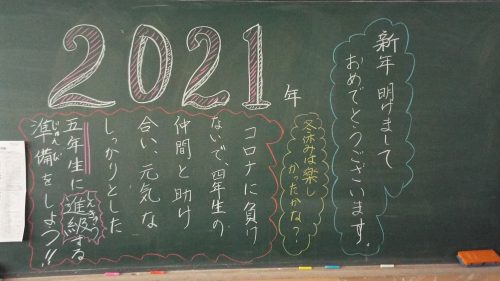 2021年
新年 明けまして
おめでとうございます。
冬休みは楽し
かったかな?
コロナに負け
ないで、四年生の
仲間と助け
合い、元気な
しっかりとした
五年生に進級する
しんきゅう
準備をしよう!!
じゅんび